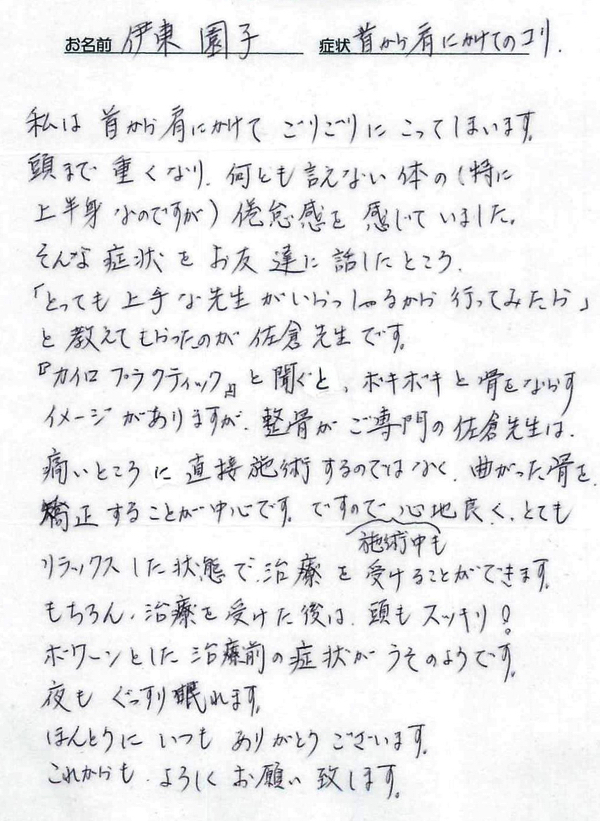 お名前 伊東 園子 症状 首から肩にかけてのコリ.
私は 首から肩にかけて ごりごりに こってしまいます。
頭まで 重くなり、何とも言えない 体の(特に
上半身 なのですが) 倦怠感を 感じていました。
そんな 症状を お友達に 話したところ、
「とっても 上手な先生 がいらっしゃるから 行ってみたら」
と 教えてもらったのが 佐倉先生です。
『カイロプラクティック』と聞くと、ボキボキと骨をならす
イメージがありますが、整骨が ご専門の佐倉先生は、
痛いところに 直接施術するのではなく、曲がった骨を
矯正することが中心です。ですので 心地良く、とても
施術中も
リラックスした状態で、治療を受けることができます。
もちろん、治療を受けた後は、頭もスッキリ!
ボワーンとした 治療前の症状が うそのようです。
夜も ぐっすり眠れます。
ほんとうに いつも ありがとう ございます。
これからも、よろしく お願い 致します。